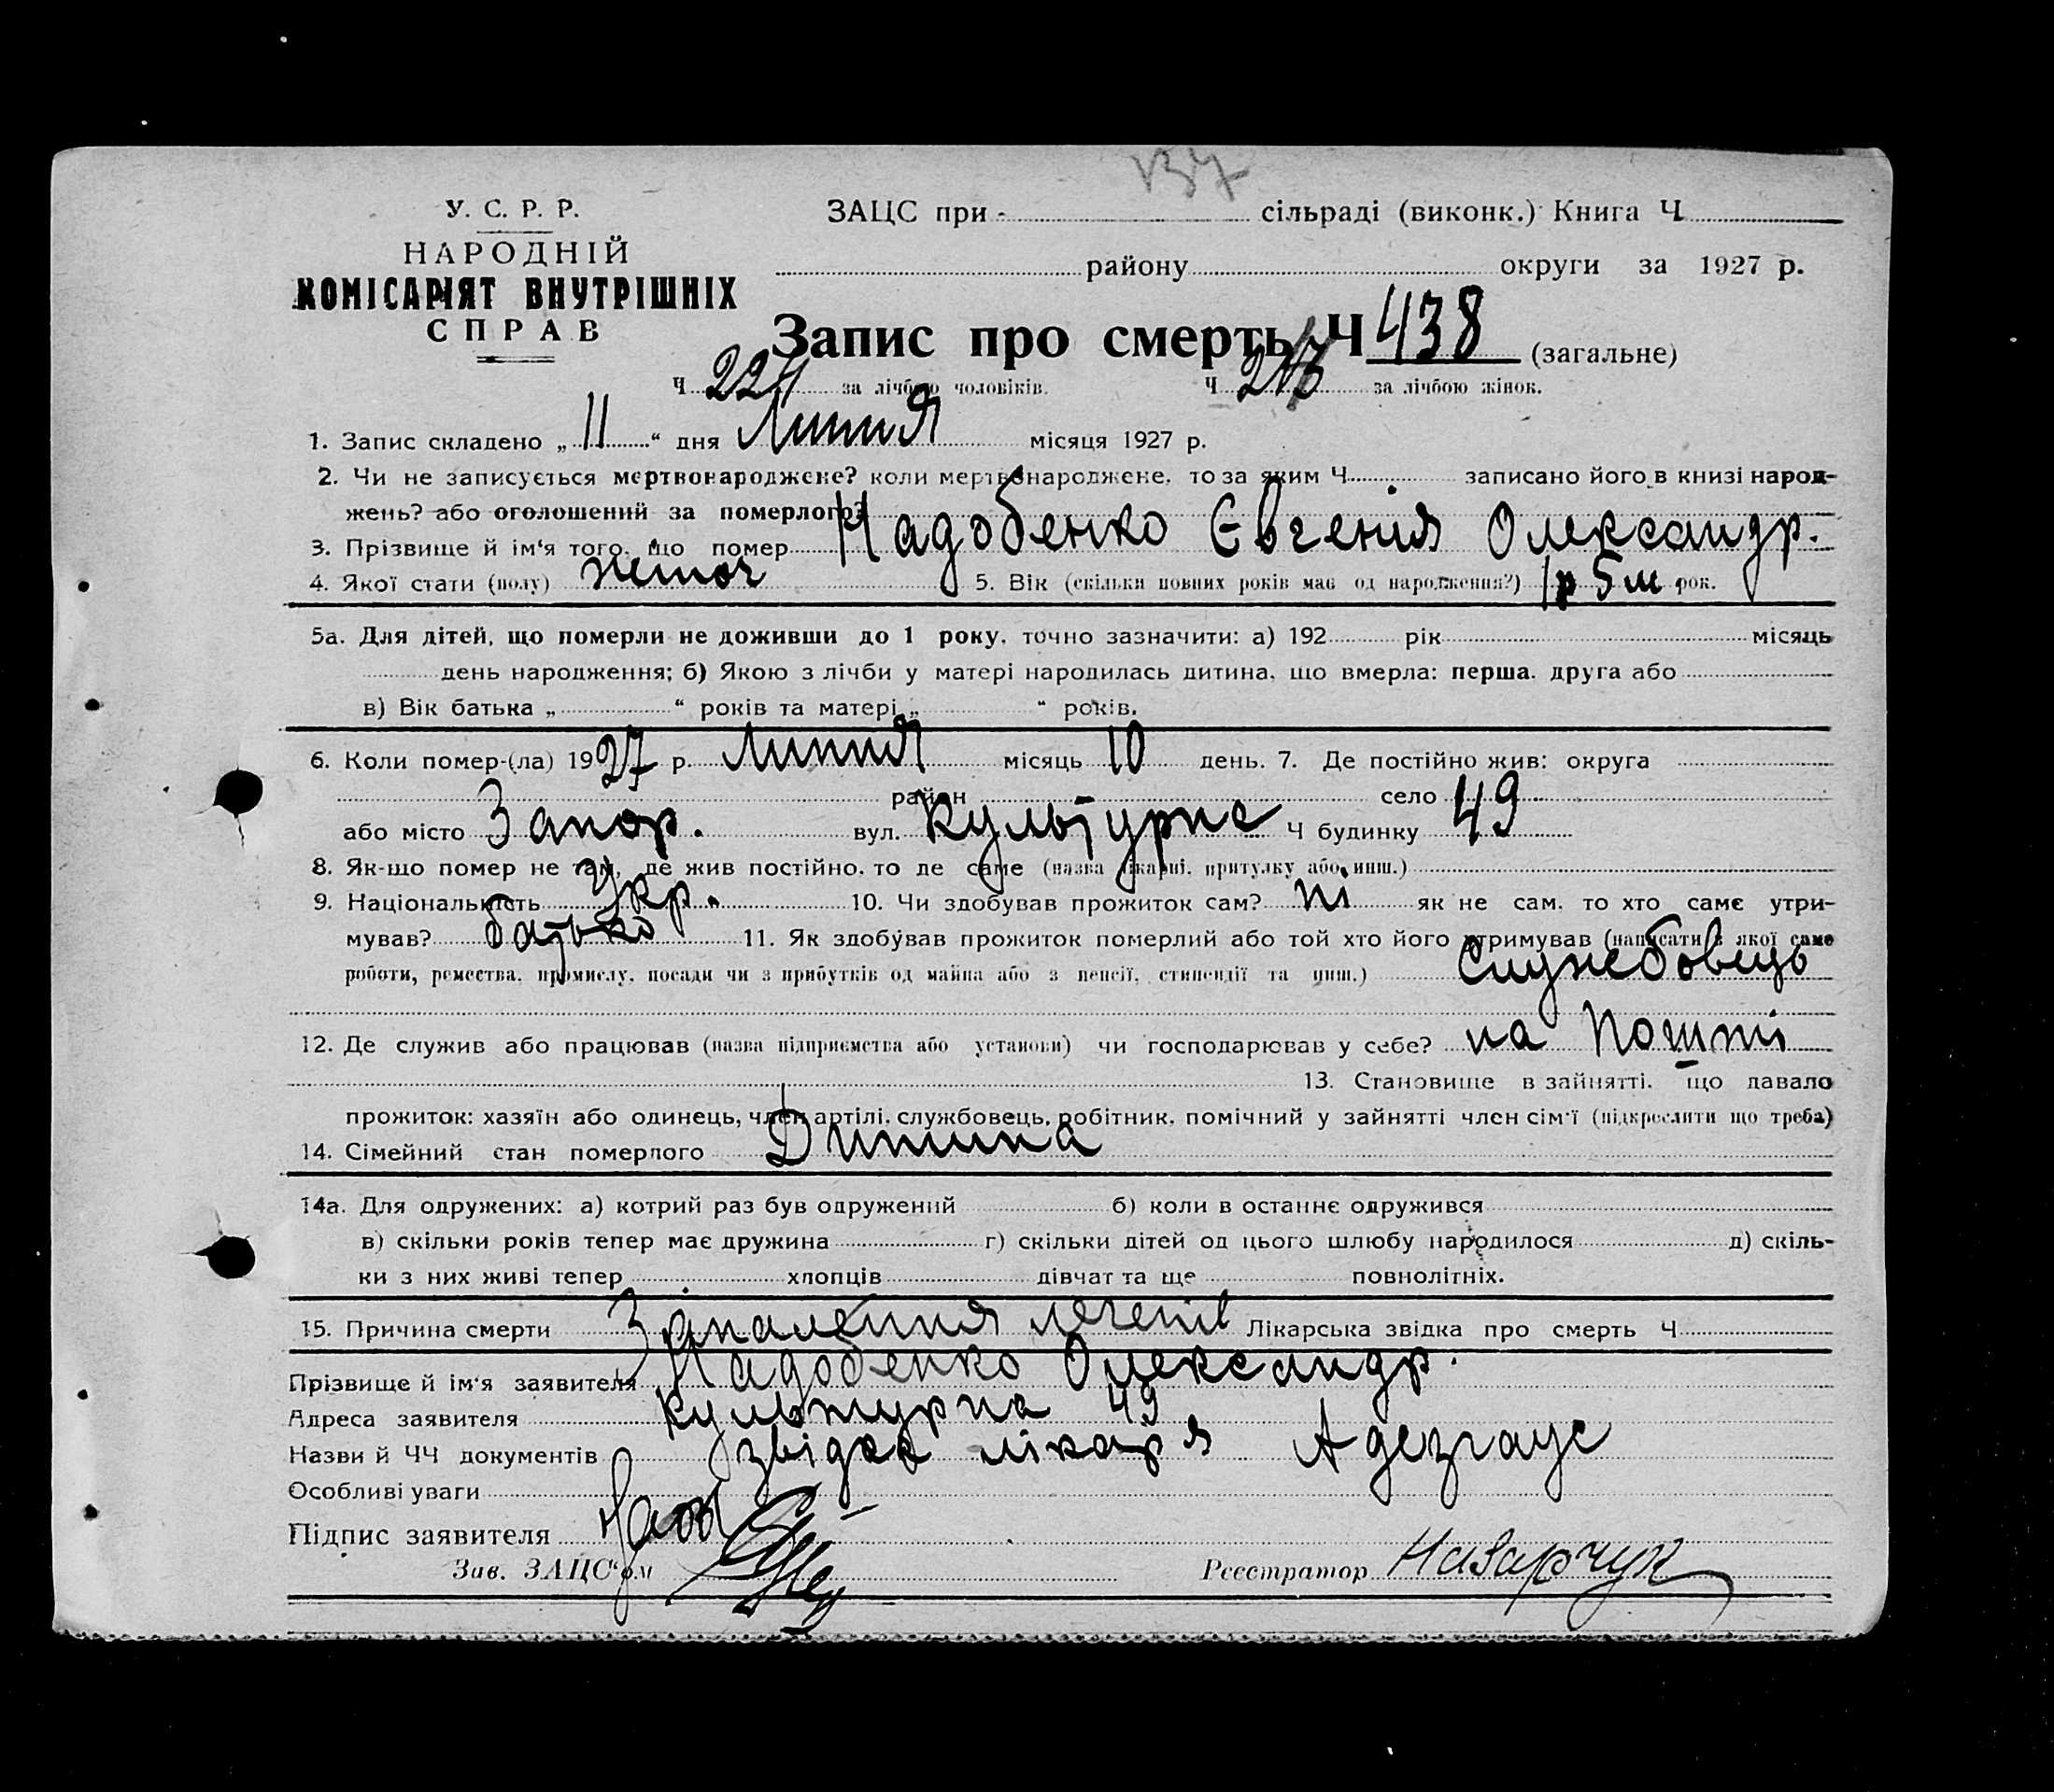 137
У. С. Р. Р.
НАРОДНІЙ
КОМІСАРІЯТ ВНУТРІШНІХ
СПРАВ
ЗАЦС при - сільраді (виконк.) Книга Ч.
району округи за 1927 р.
Запис про смерть Ч 438 (загальне)
Ч 224 за лічбою чоловіків. Ч за лічбою жінок.
1. Запис складено „ 11 “ дня Липня місяця 1927 р.
2. Чи не записується мертвонароджене? коли мертвонароджене, то за яким Ч записано його в книзі народ-
жень? або оголошений за померлого?
3. Прізвище й ім'я того, що помер Надобенко Євгенія Олександр.
4. Якої стати (полу) жіноч 5. Вік (скільки повних років має од народження?) 1р 5м рок.
5а. Для дітей, що померли не доживши до 1 року, точно зазначити: а) 192 рік місяць
день народження; б) Якою з лічби у матері народилась дитина, що вмерла: перша, друга або
в) Вік батька „ “ років та матері „ “ років.
6. Коли помер-(ла) 1927 р. Липня місяць 10 день. 7. Де постійно жив: округа
район село
або місто Запор. вул. Культурна Ч будинку 49
8. Як-що помер не там, де жив постійно, то де саме (назва лікарні, притулку або инш.)
9. Національність Укр. 10. Чи здобував прожиток сам? ні як не сам, то хто саме утри-
мував? батько 11. Як здобував прожиток померлий або той хто його утримував (написати з якої саме
роботи, ремества, промислу, посади чи з прибутків од майна або з пенсії, стипендії та инш.) Службовець
12. Де служив або працював (назва підприємства або установи) чи господарював у себе? на Пошті
13. Становище в зайнятті, що давало
прожиток: хазяїн або одинець, член артілі, службовець, робітник, помічний у зайнятті член сім'ї (підкреслити що треба)
14. Сімейний стан померлого Дитина
14а. Для одружених: а) котрий раз був одружений б) коли в останнє одружився
в) скільки років тепер має дружина г) скільки дітей од цього шлюбу народилося д) скіль-
ки з них живі тепер хлопців дівчат та ще повнолітніх.
15. Причина смерти Запалення легенів Лікарська звідка про смерть Ч
Прізвище й ім'я заявителя Надобенко Олександр.
Адреса заявителя Культурна 49
Назви й ЧЧ документів звідка лікаря
Особливі уваги
Підпис заявителя
Зав. ЗАЦС'ом Реєстратор Назарчук